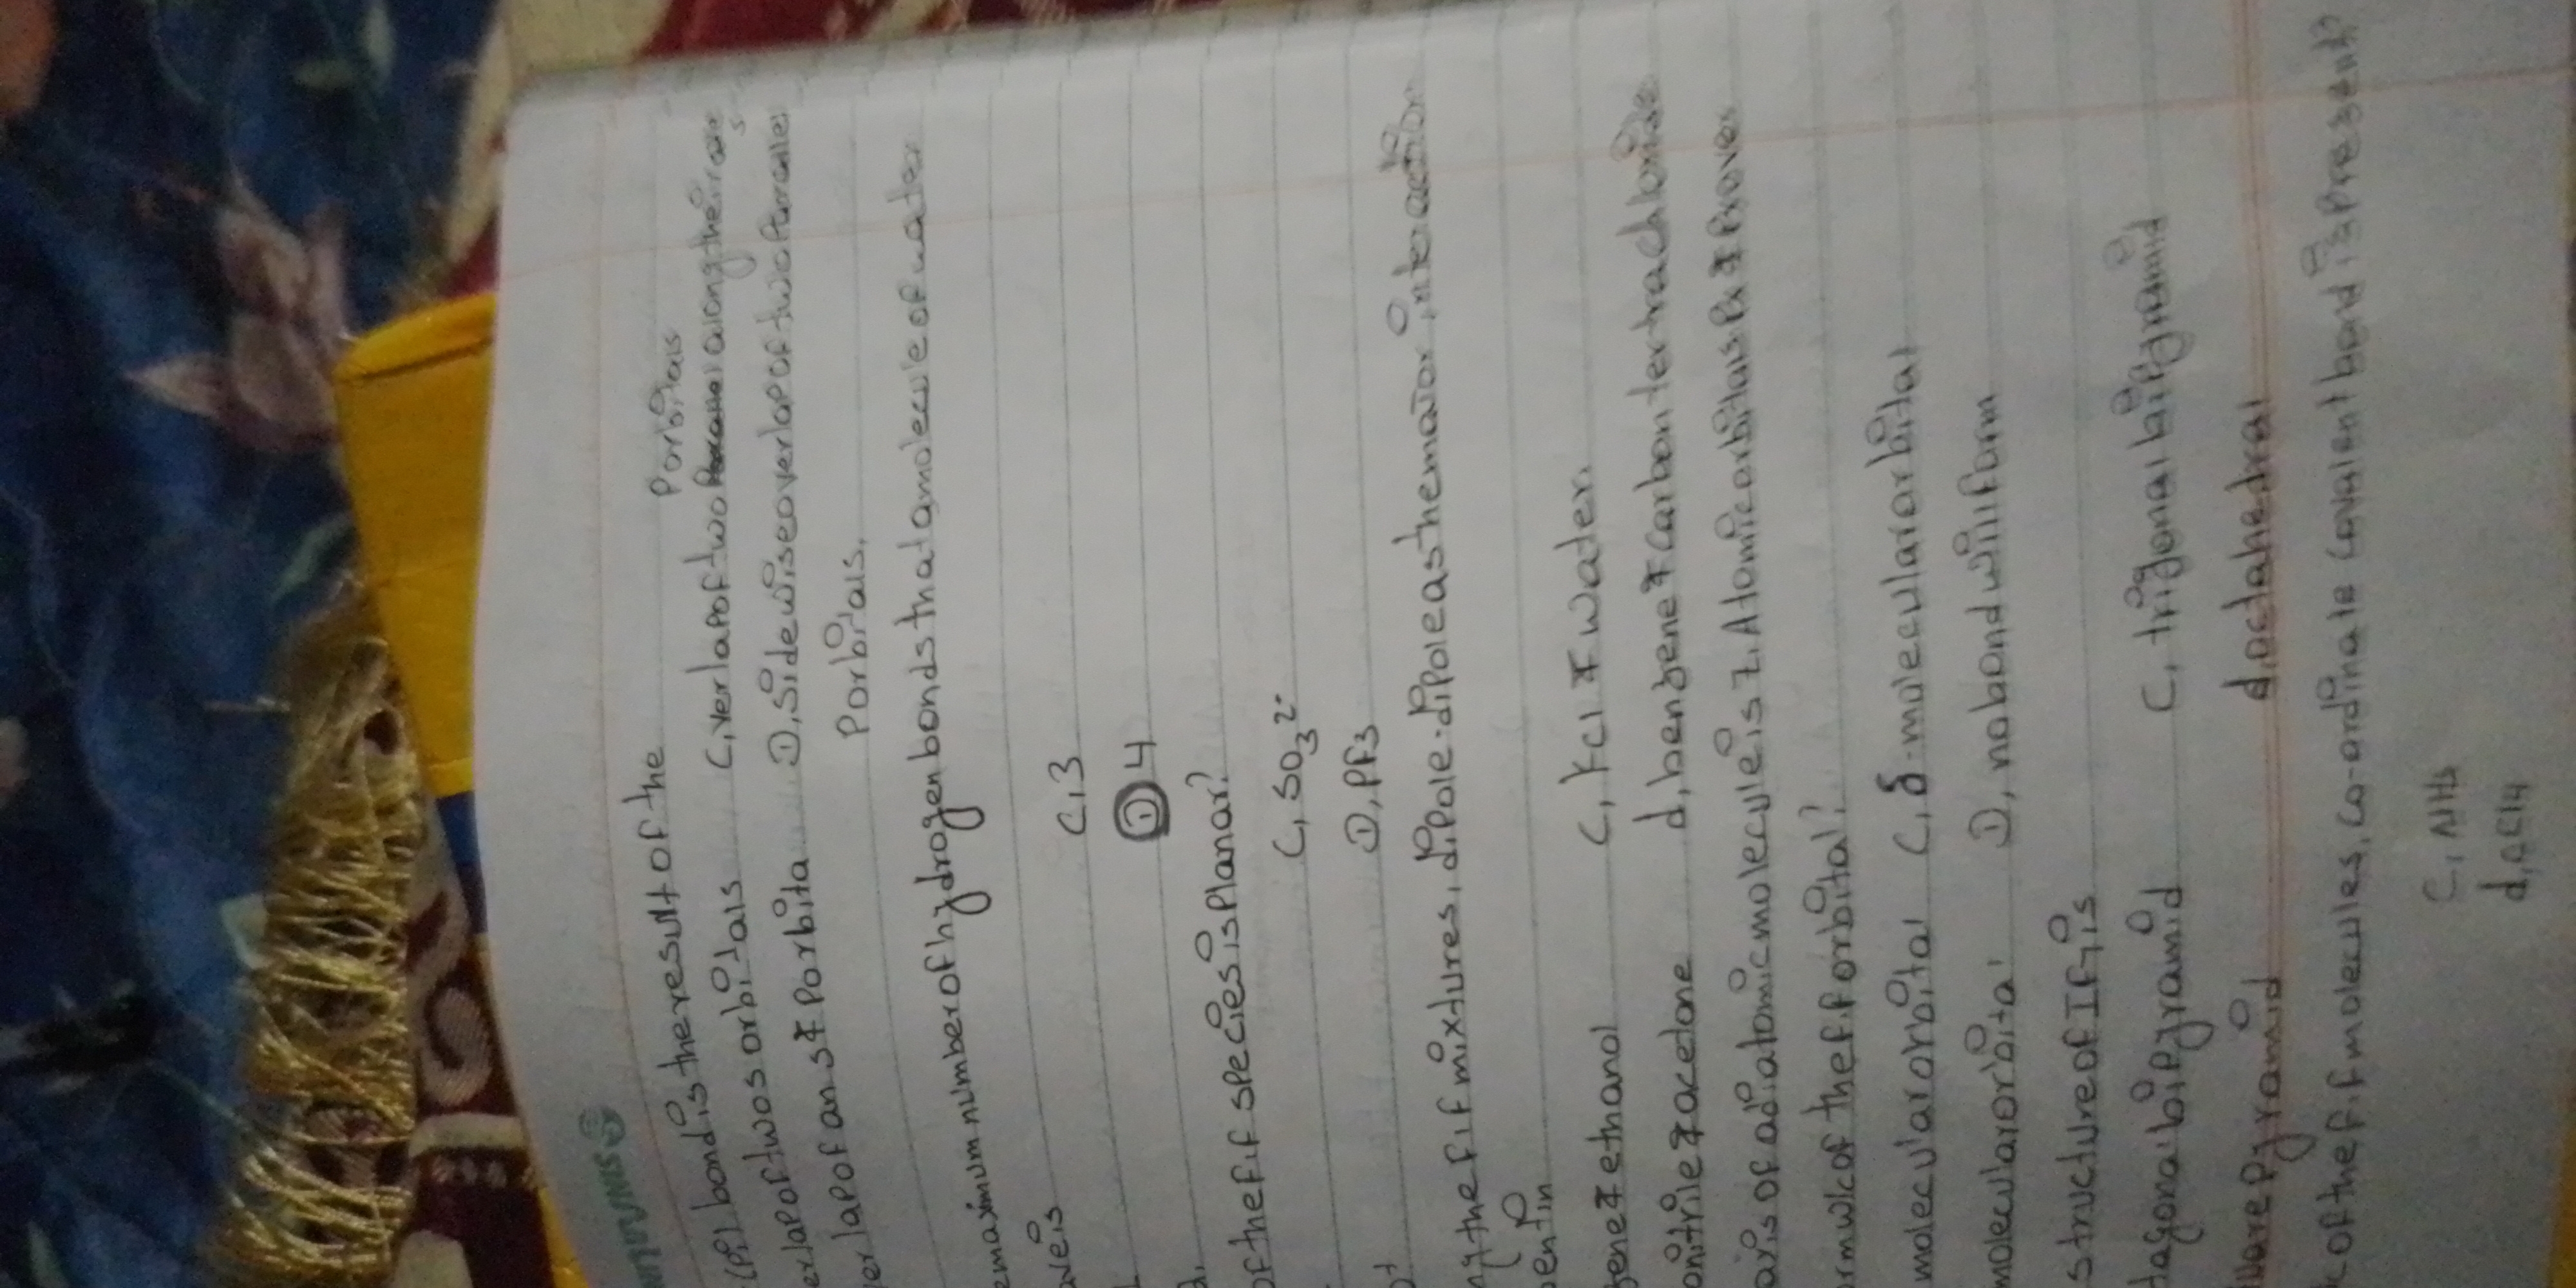 (Pi) bond is the result of the
Porbitals
erlap of two s orbitals C, verlap of two along their axe
s
erlap of an s & P orbita D, side wise overlap of two Parralel
Porbitals.
e maximum number of hydrogen bonds that a molecule of water
ave is
C, 3
D 4
of the f.f species is Planar?
C, SO3 2-
D, PF3
ng the f.f mixtures, dipole-dipole as the major interaction
ent in
zene & ethanol C, KCl & water.
onitrile & acetone d, benzene & carbon tertrachloride
axis of a diatomic molecule is z, Atomic orbitals Px & Py over
orm wc of the f.f orbital?
molecular orbital C, δ-molecular orbital
molecular orbital D, no bond will form
structure of IF7 is
tagonal bipyramid C, trigonal bipyramid
uare Pyramid d, octahedral
c of the f.f molecules, co-ordinate covalent bond is Present?
C, NH3